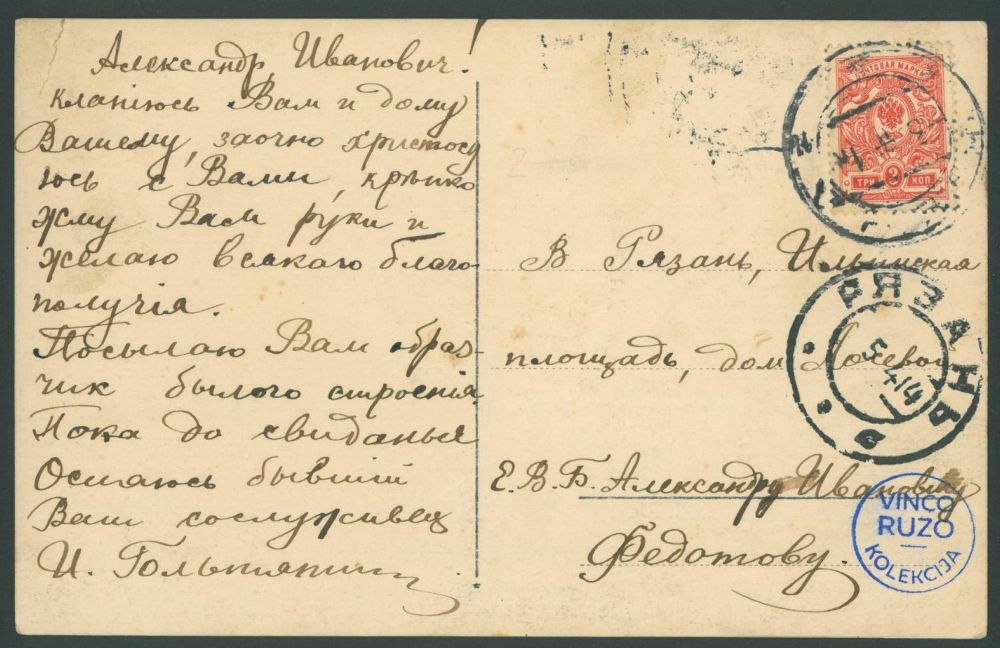 Александр Иванович!
кланiюсь Вам и дому
Вашему, заочно христосу
юсь с Вами, крѣпко
жму Вам руки и
желаю всякаго благо-
получiя.
Посылаю Вам образ-
чик былого строенiя
Пока до свиданья
Остаюсь бывшiй
Ваш сослуживец
И.
ПОЧТОВАЯ МАРКА
ТРИ 3 КОП.
В Рязань, Ильинская
площадь, дом
Е.В.Б. Александру Ивановичу
Федотову.
РЯЗАНЬ
5 4 14
VINCO
RUZO
KOLEKCIJA